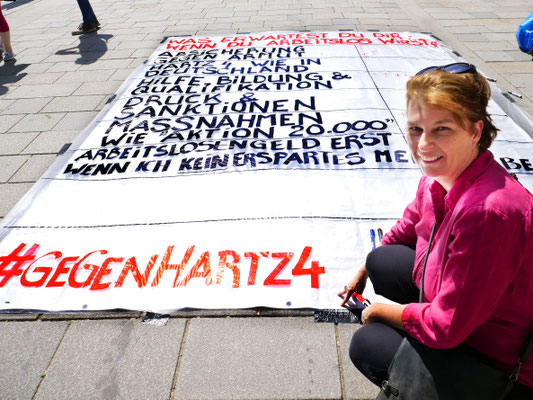 WAS ERWARTEST DU DIR,
WENN DU ARBEITSLOS WIRST?
ABSICHERUNG
GEGEN ARMUT
HARTZ 4 WIE IN
DEUTSCHLAND
HILFE, BILDUNG &
QUALIFIKATION
DRUCK &
SANKTIONEN
MASSNAHMEN
WIE "AKTION 20.000"
ARBEITSLOSENGELD ERST
WENN ICH KEIN ERSPARTES ME
#GEGENHARTZ4